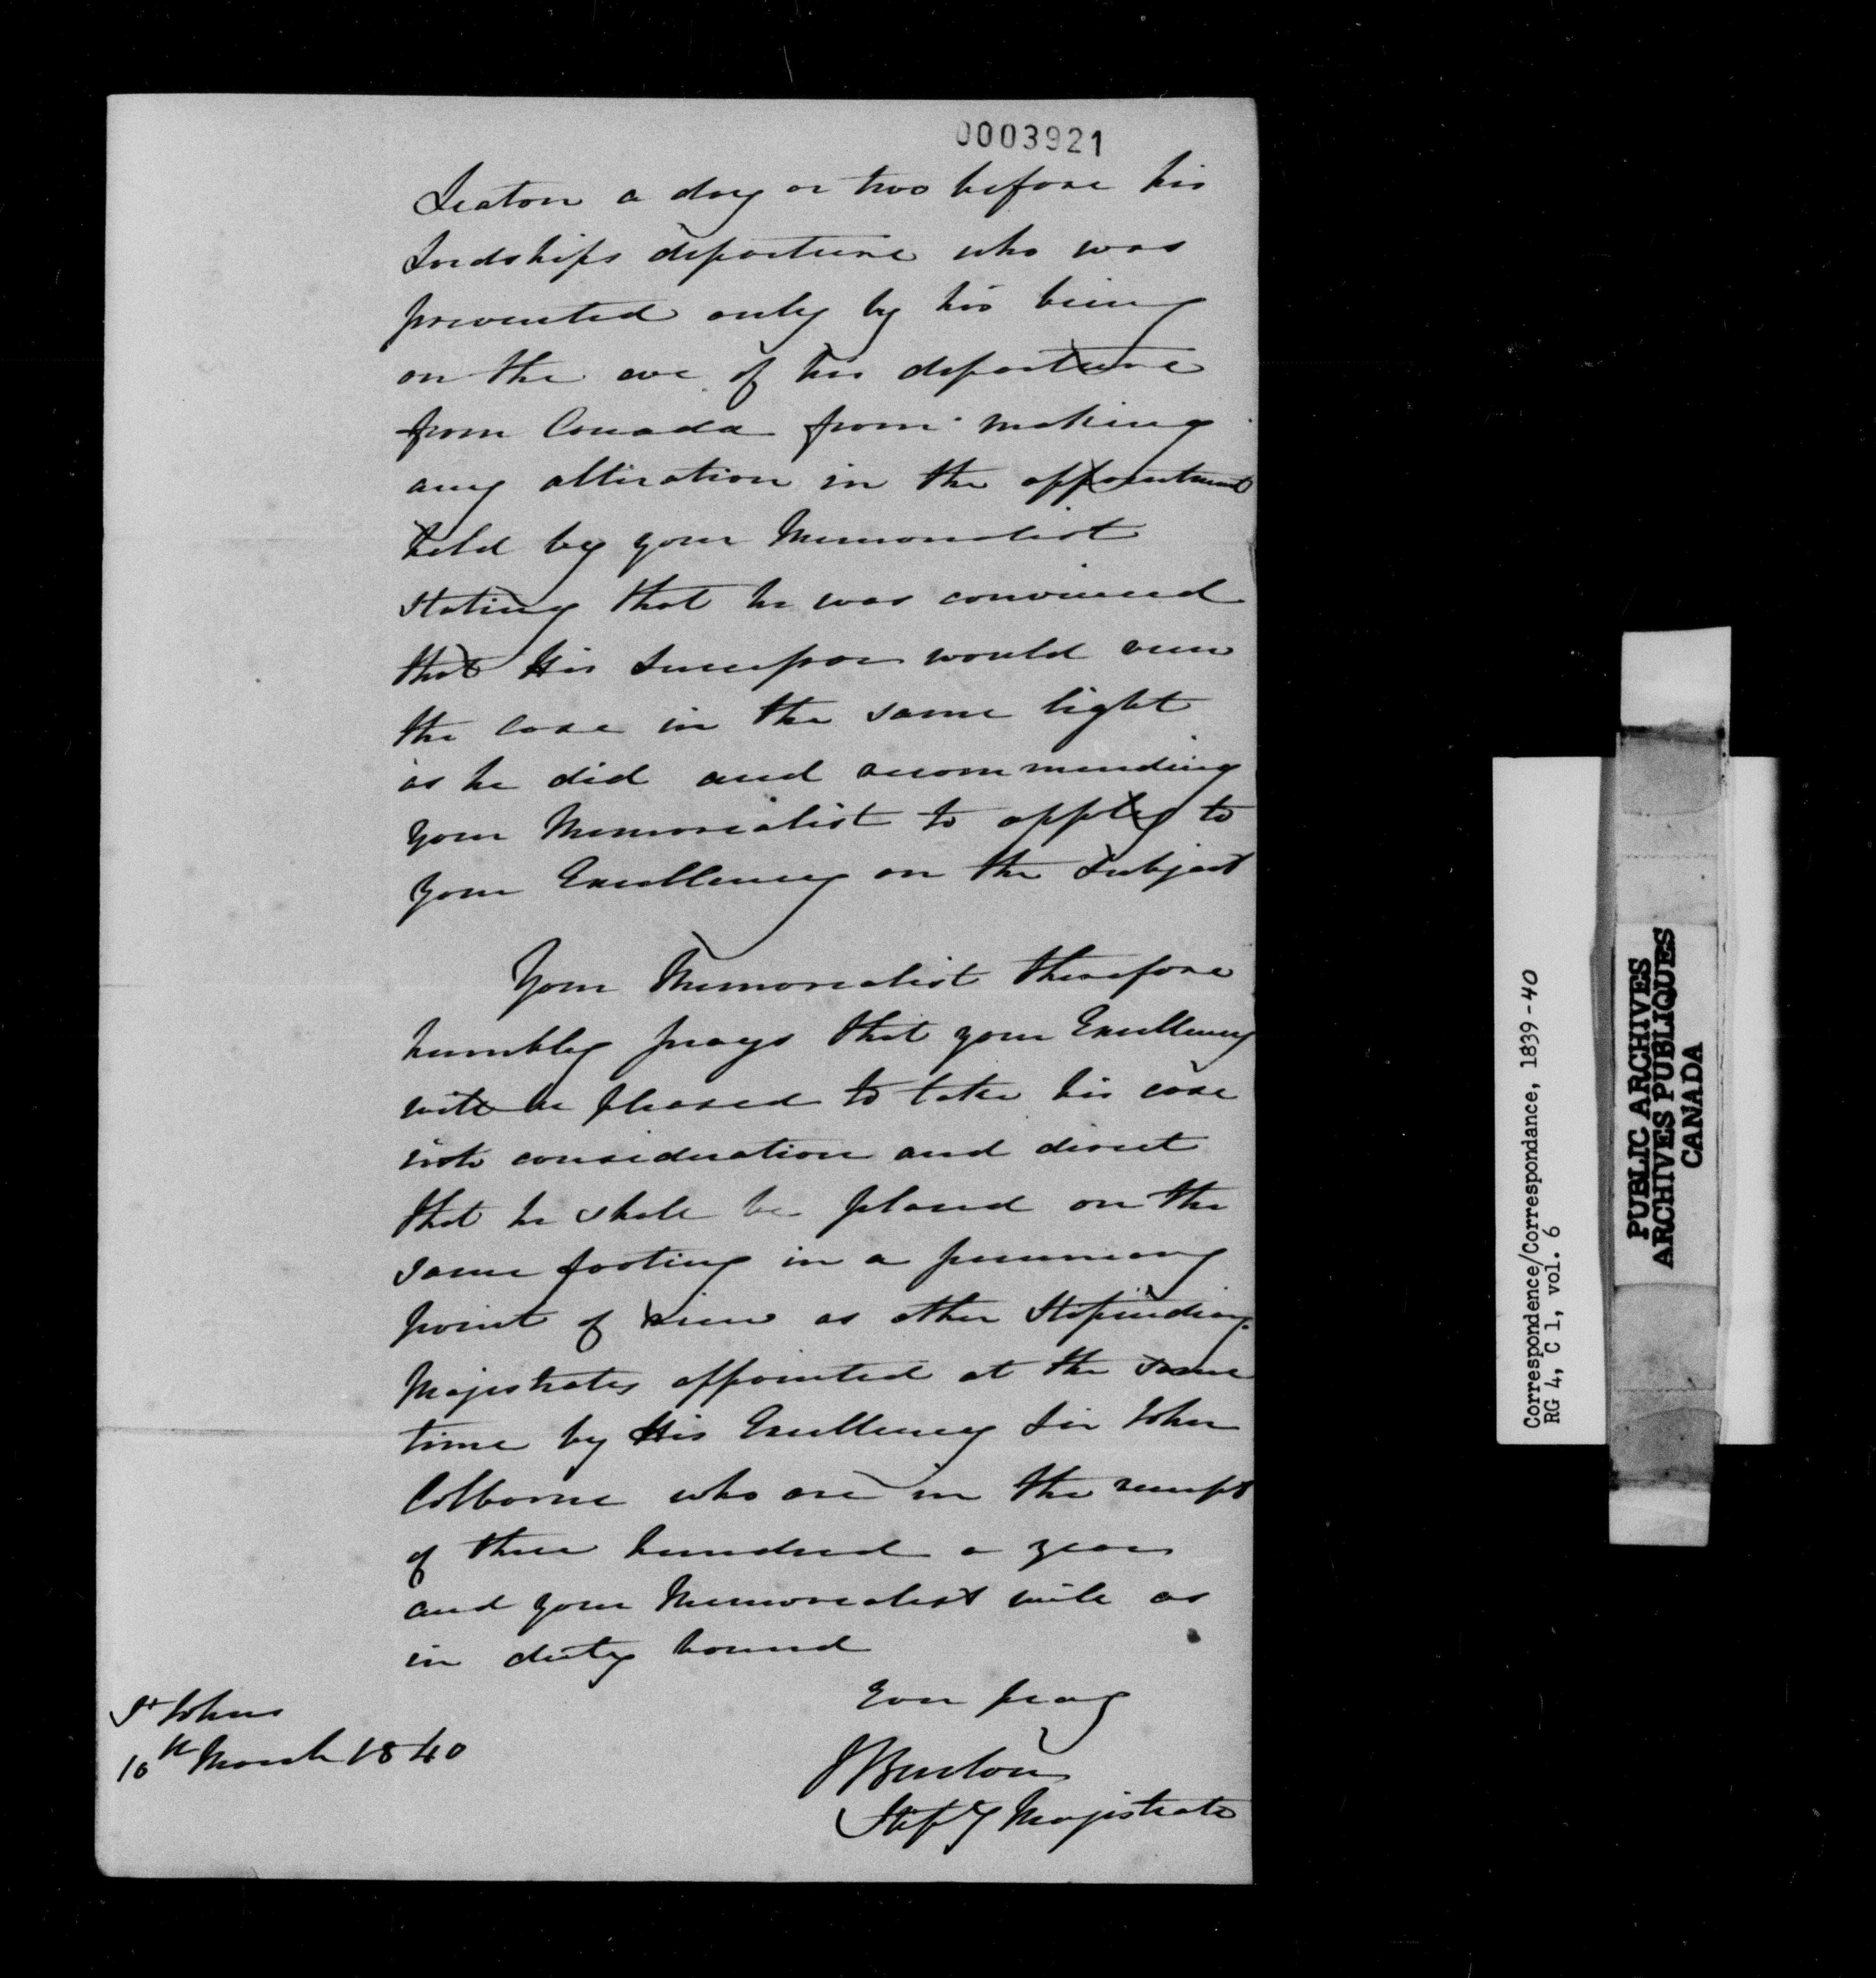 0003921
Seaton a day or two before his
Lordships departure who was
prevented only by his being
on the eve of his departure
from Canada from making
any alteration in the appointment
held by your Memorialist
stating that he was convinced
that His Successor would view
the case in the same light
as he did and recommending
your Memorialist to apply to
your Excellency on the subject
Your Memorialist therefore
humbly prays that your Excellency
will be pleased to take his case
into consideration and direct
that he shall be placed on the
same footing in a pecuniary
point of view as other Stipendiary
Majistrates appointed at the same
time by His Excellency Sir John
Colborne who are in the receipt
of three hundred a year
and your Memorialist will as
in duty bound
Ever pray
St Johns
10th March 1840
Stipy Majistrate
Correspondence/Correspondance, 1839-40
RG 4, C 1, vol. 6
PUBLIC ARCHIVES
ARCHIVES PUBLIQUES
CANADA